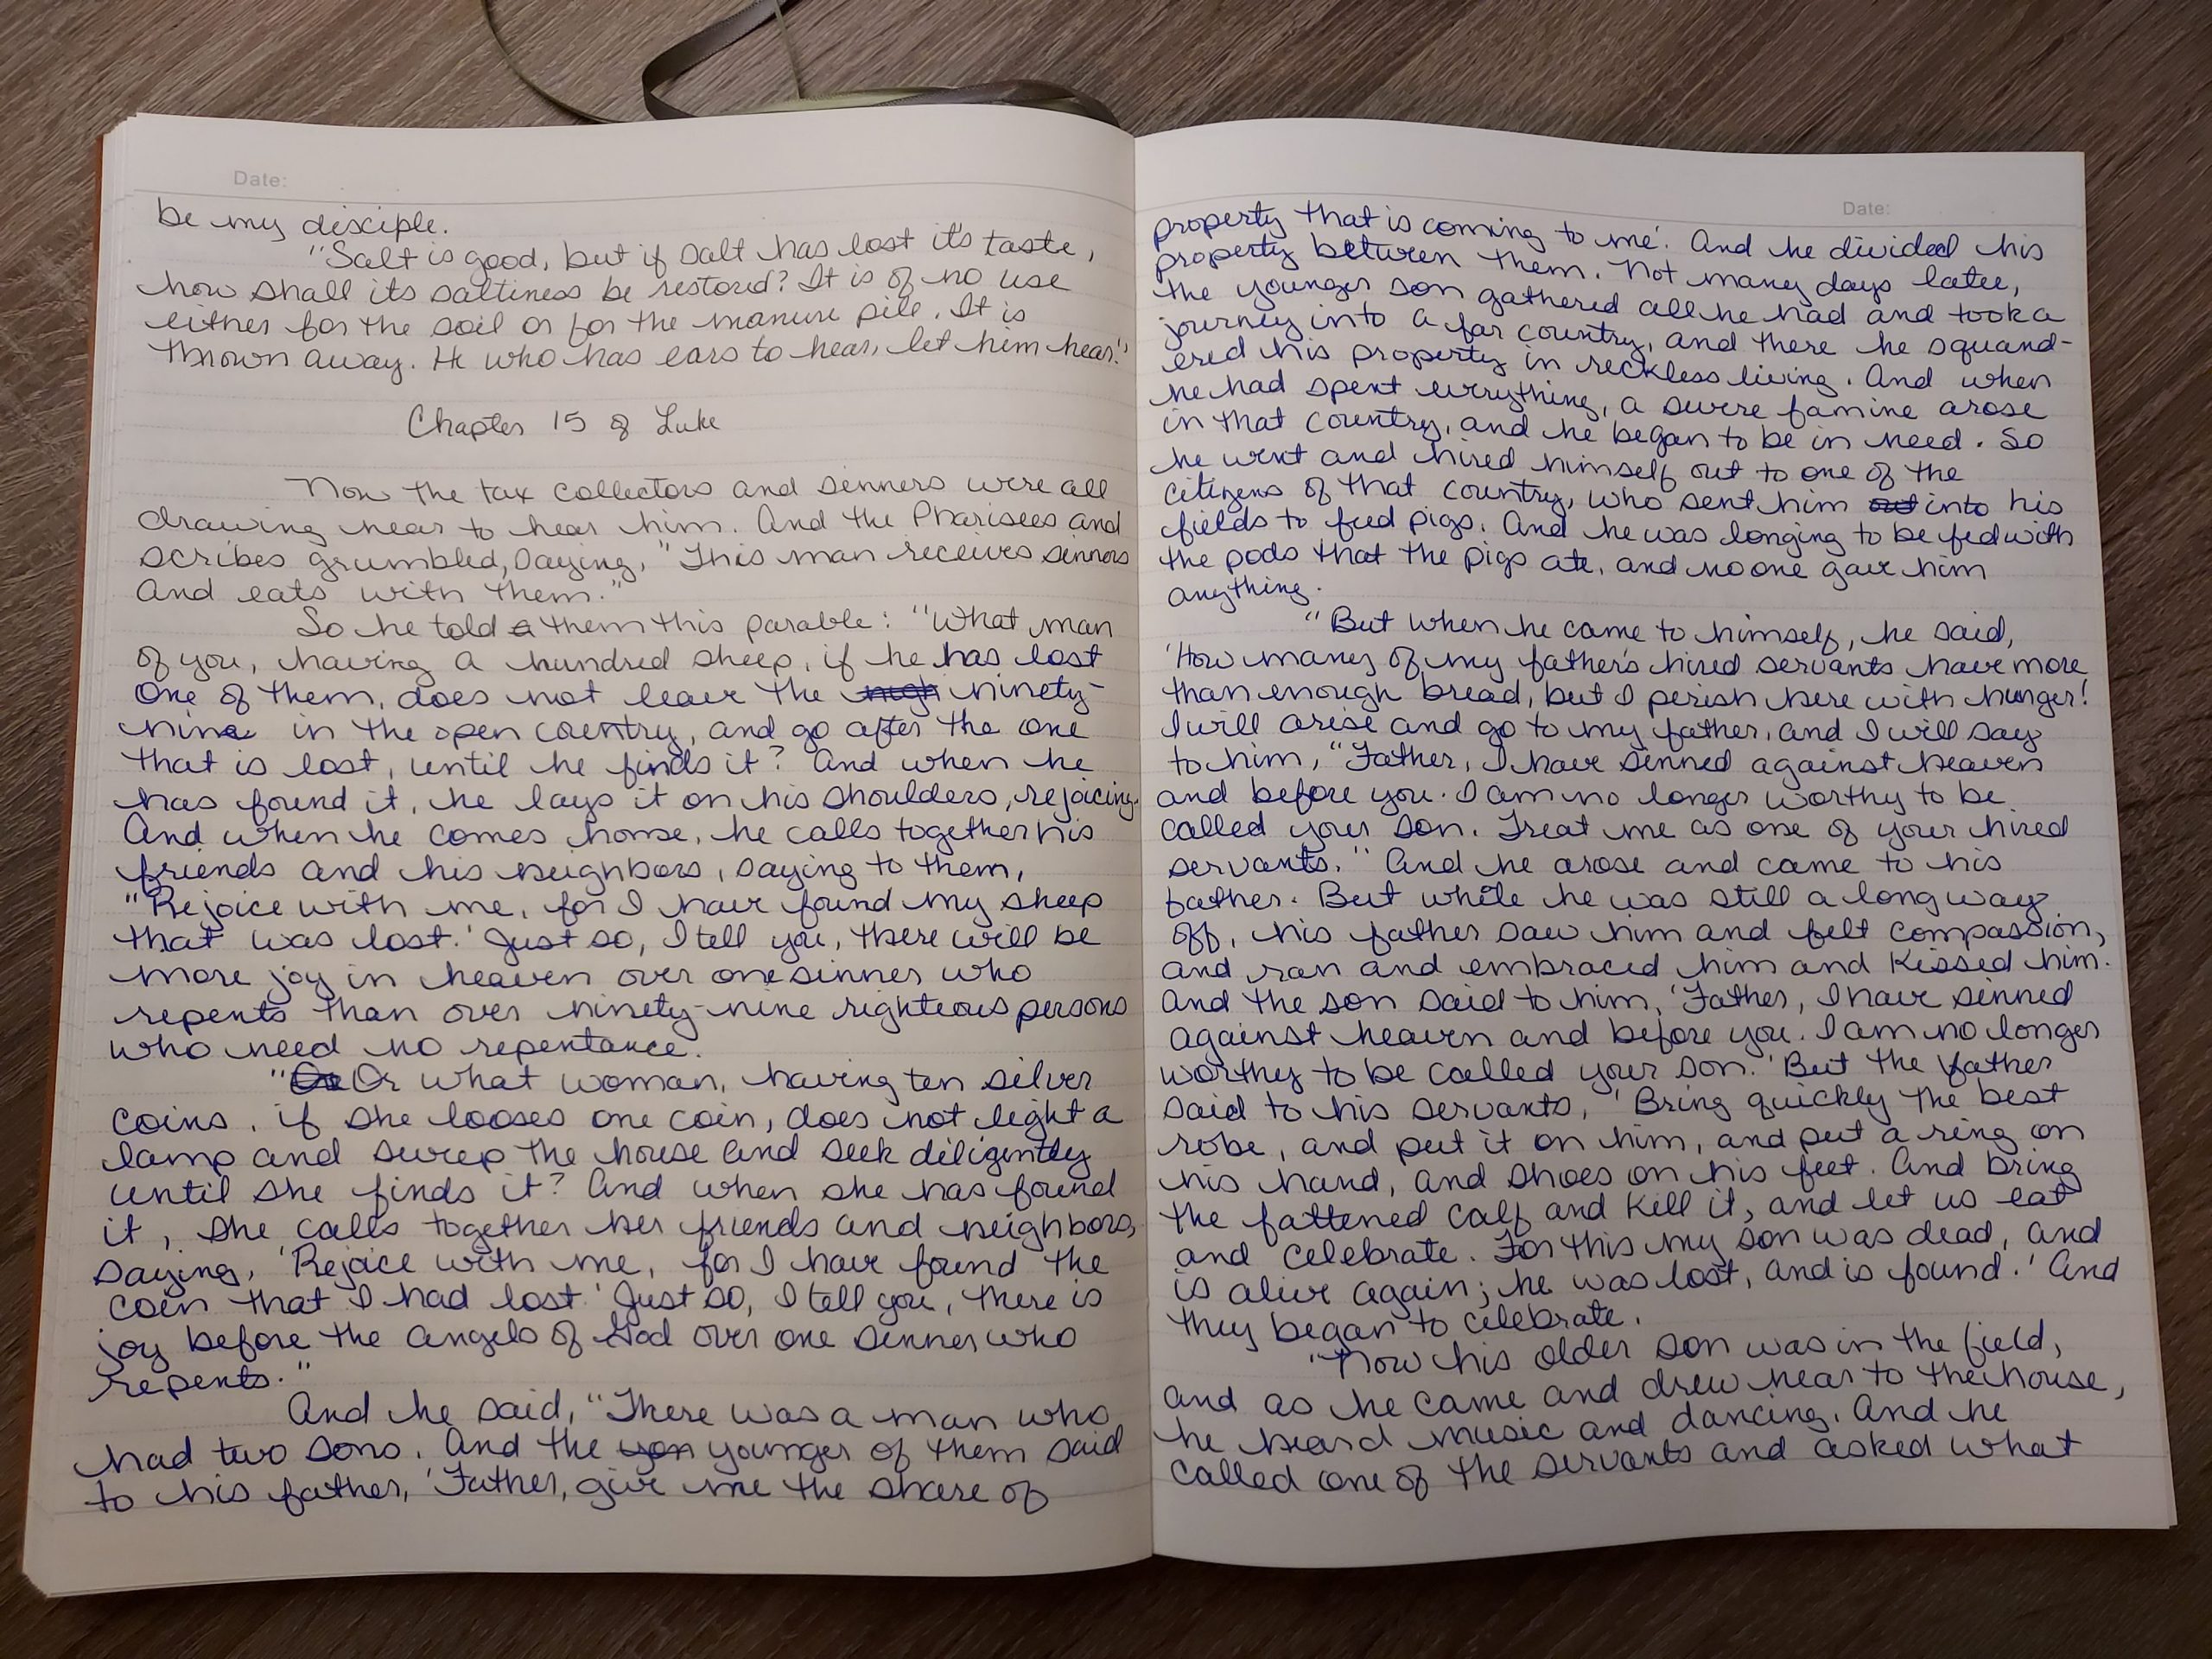 Date:
be my disciple.
"Salt is good, but if salt has lost it's taste,
how shall its saltiness be restored? It is of no use
either for the soil or for the manure pile. It is
thrown away. He who has ears to hear, let him hear."
Chapter 15 of Luke
Now the tax collectors and sinners were all
drawing near to hear him. And the Pharisees and
scribes grumbled, saying, "This man receives sinners
and eats with them."
So he told a them this parable: "What man
of you, having a hundred sheep, if he has lost
one of them, does not leave the nigh ninety-
nine in the open country, and go after the one
that is lost, until he finds it? And when he
has found it, he lays it on his shoulders, rejoicing.
And when he comes home, he calls together his
friends and his neighbors, saying to them,
"Rejoice with me, for I have found my sheep
that was lost.' Just so, I tell you, there will be
more joy in heaven over one sinner who
repents than over ninety-nine righteous persons
who need no repentance.
"Or what woman, having ten silver
coins, if she looses one coin, does not light a
lamp and sweep the house and seek diligently
until she finds it? And when she has found
it, she calls together her friends and neighbors,
saying, 'Rejoice with me, for I have found the
coin that I had lost.' Just so, I tell you, there is
joy before the angels of God over one sinner who
repents."
And he said, "There was a man who
had two sons. And the yon younger of them said
to his father, 'Father, give me the share of
Date:
property that is coming to me.' And he divided his
property between them. Not many days later,
the younger son gathered all he had and took a
journey into a far country, and there he squand-
ered his property in reckless living. And when
he had spent everything, a severe famine arose
in that country, and he began to be in need. So
he went and hired himself out to one of the
citizens of that country, who sent him out into his
fields to feed pigs. And he was longing to be fed with
the pods that the pigs ate, and no one gave him
anything.
"But when he came to himself, he said,
'How many of my father's hired servants have more
than enough bread, but I perish here with hunger!
I will arise and go to my father, and I will say
to him, "Father, I have sinned against heaven
and before you. I am no longer worthy to be
called your son. Treat me as one of your hired
servants." And he arose and came to his
father. But while he was still a long way
off, his father saw him and felt compassion,
and ran and embraced him and kissed him.
And the son said to him, 'Father, I have sinned
against heaven and before you. I am no longer
worthy to be called your son.' But the father
said to his servants, 'Bring quickly the best
robe, and put it on him, and put a ring on
his hand, and shoes on his feet. And bring
the fattened calf and kill it, and let us eat
and celebrate. For this my son was dead, and
is alive again; he was lost, and is found.' And
they began to celebrate.
"Now his older son was in the field,
and as he came and drew near to the house,
he heard music and dancing. And he
called one of the servants and asked what